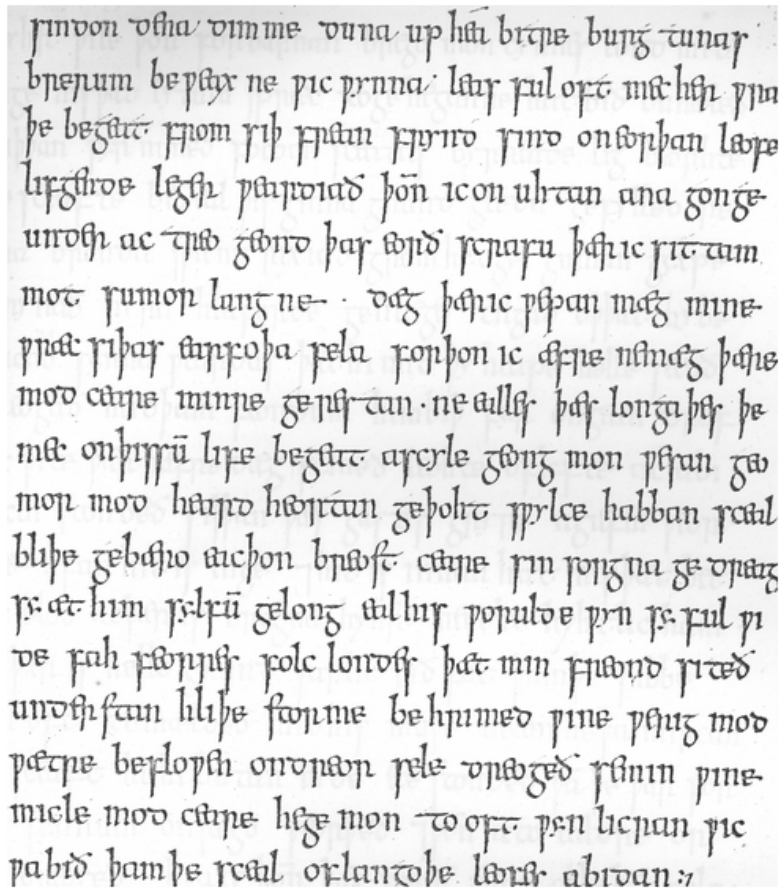 sindon dena dimme duna up hea bitre burg tunas
brerum beƿeaxne ƿic ƿynna leas ful oft mec her ƿra
þe begeat from siþ frean frynd sind on eorþan leofe
lifgende leger ƿeardiað þon̄ ic on uhtan ana gonge
under ac treo geond þas eorð scrafu þær ic sittam
mot sumor lang ne dæg þær ic ƿepan mæg mine
ƿræc siþas earfoþa fela forþon ic æfre ne mæg þære
mod ceare minre ge restan ne ealles þæs longaþes þe
mec on þissū life begeat a scyle geong mon ƿesan geo
mor mod heard heortan geþoht sƿylce habban sceal
bliþe gebæro eac þon breost ceare sin sorgna ge dreag
sy æt him sylfū gelong eal his ƿorulde ƿyn sy ful ƿi
de fah feorres folc londes þæt min freond siteð
under stan hliþe storme behrimed ƿine ƿerig mod
ƿætre befloƿen on dreor sele dreogeð se min ƿine
micle mod ceare he ge mon to oft ƿynlicran ƿic
ƿa bið þam þe sceal of langoþe leofes abidan :7